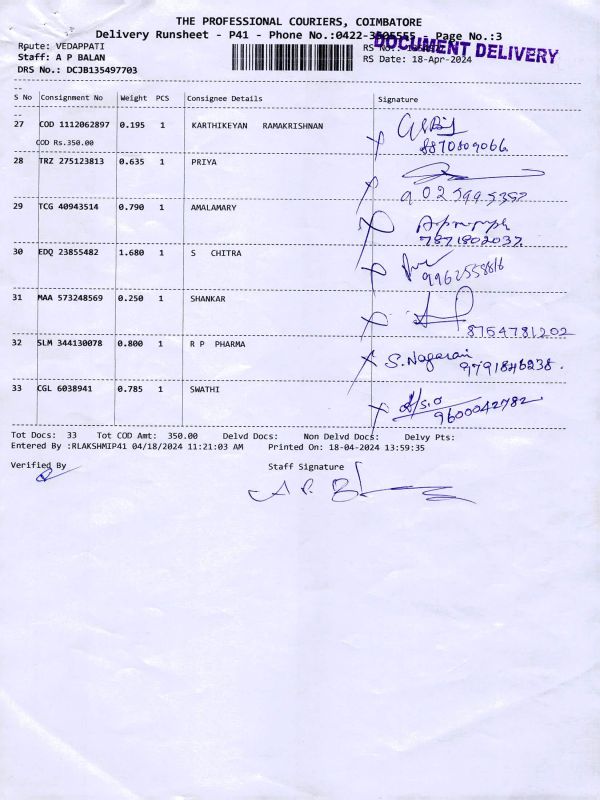 THE PROFESSIONAL COURIERS, COIMBATORE
Delivery Runsheet - P41 - Phone No.:0422- Page No.:3
DOCUMENT DELIVERY
Route: VEDAPPATI RS No.:
Staff: A P BALAN RS Date: 18-Apr-2024
DRS No.: DCJB135497703
S No Consignment No Weight PCS Consignee Details Signature
27 COD 1112062897 0.195 1 KARTHIKEYAN RAMAKRISHNAN
COD Rs.350.00 8870809066.
28 TRZ 275123813 0.635 1 PRIYA
29 TCG 40943514 0.790 1 AMALAMARY
7871802037.
30 EDQ 23855482 1.680 1 S CHITRA
9962558816
31 MAA 573248569 0.250 1 SHANKAR
8754781202
32 SLM 344130078 0.800 1 R P PHARMA S. Nagarani
9791846238.
33 CGL 6038941 0.785 1 SWATHI
9600042782.
Tot Docs: 33 Tot COD Amt: 350.00 Delvd Docs: Non Delvd Docs: Delvy Pts:
Entered By :RLAKSHMIP41 04/18/2024 11:21:03 AM Printed On: 18-04-2024 13:59:35
Verified By Staff Signature